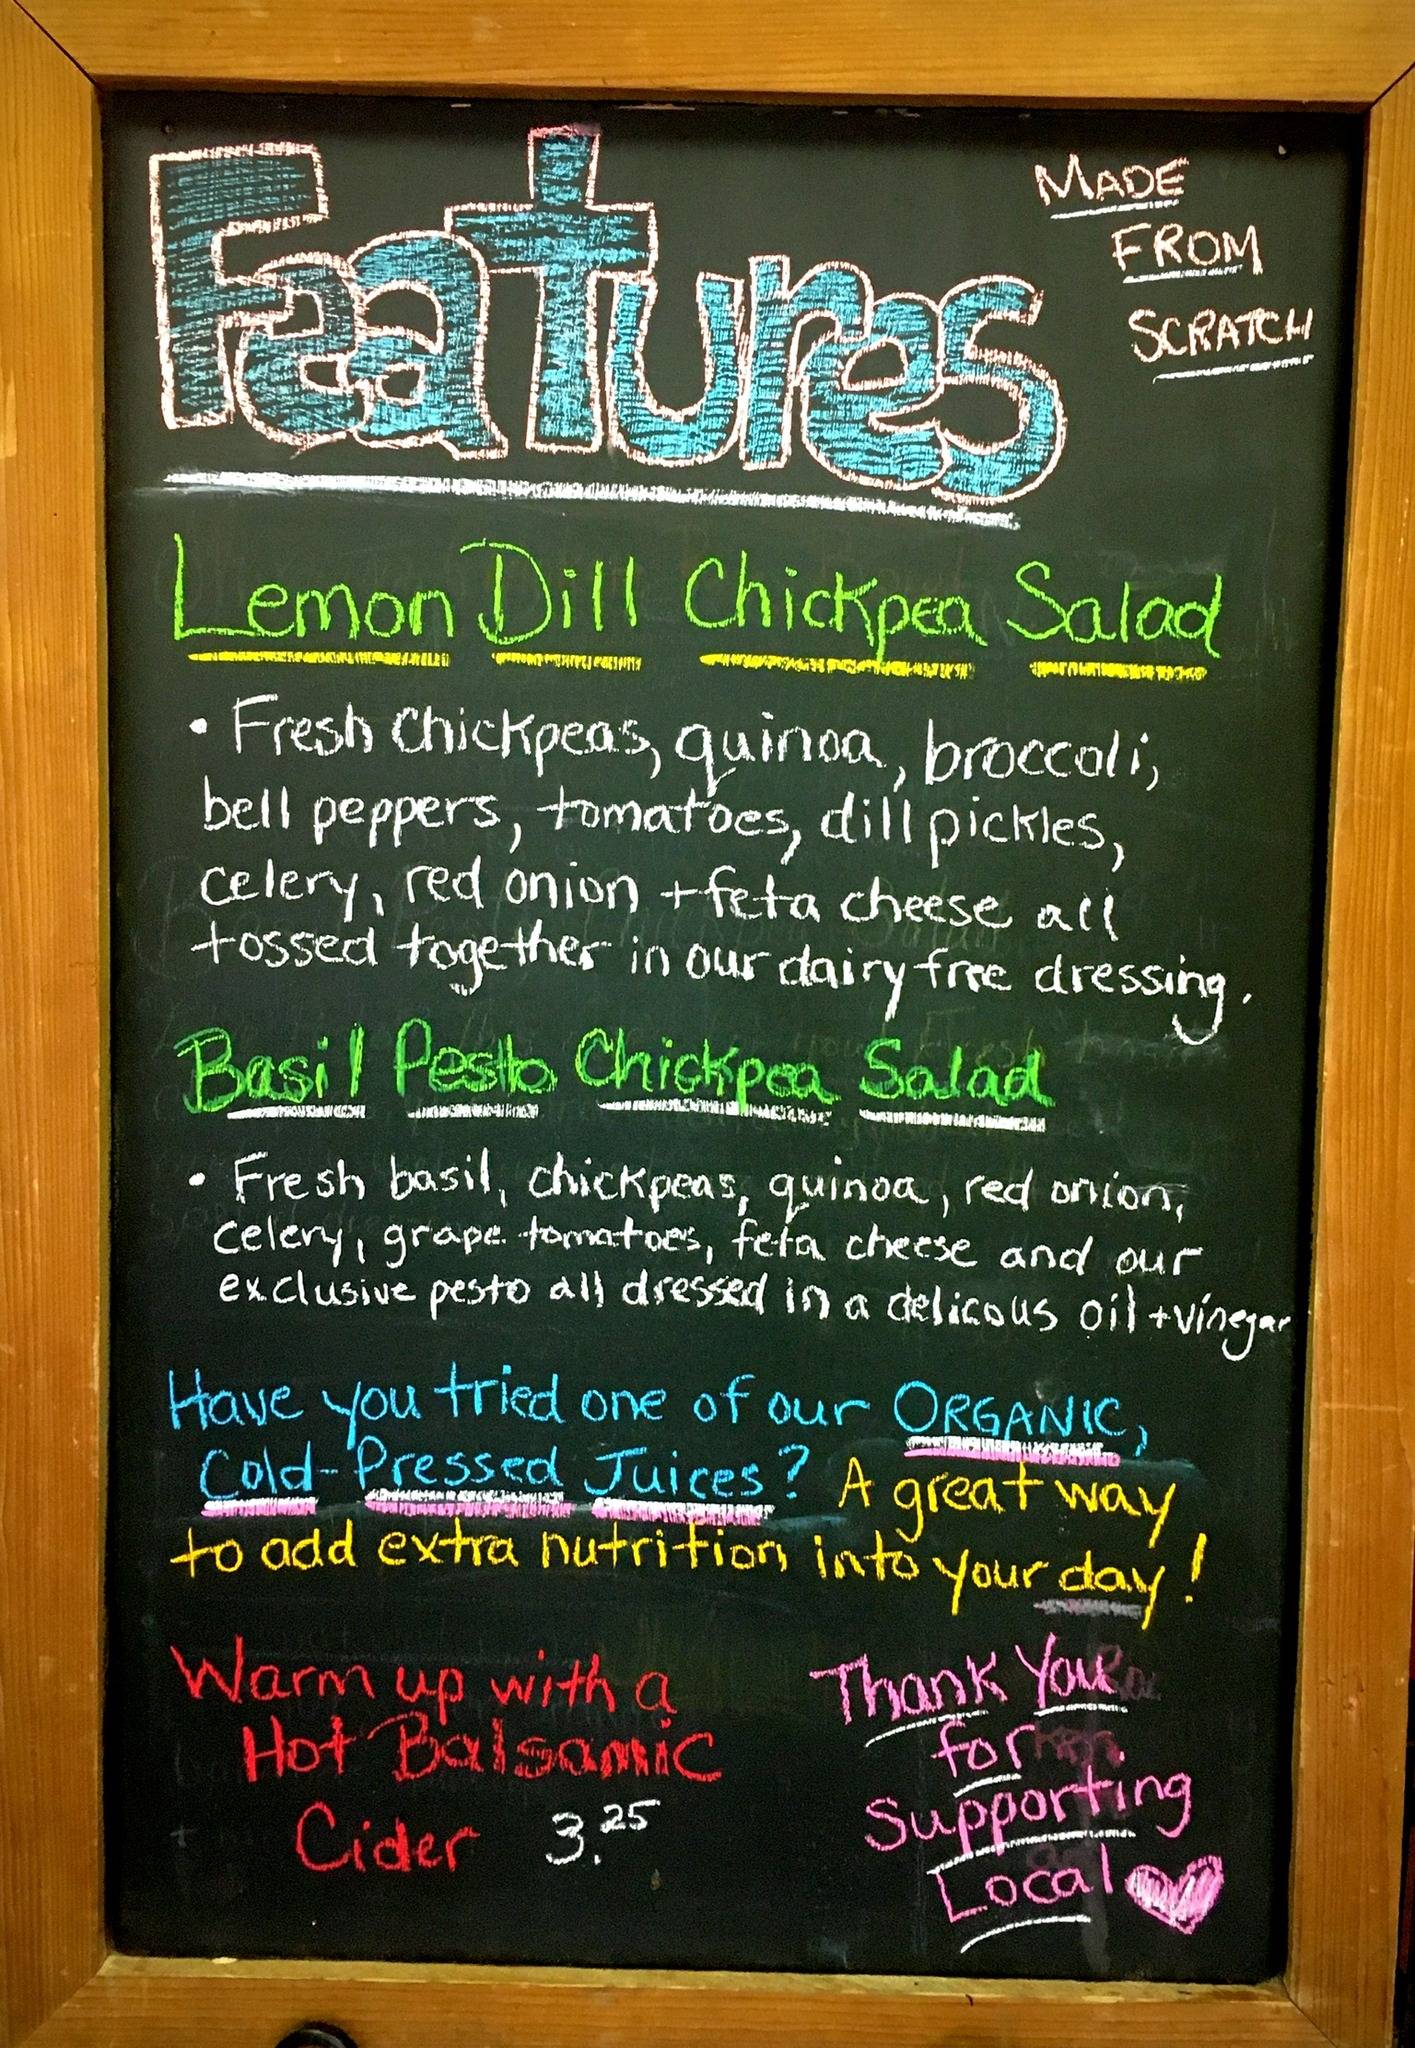 Features
MADE
FROM
SCRATCH
Lemon Dill Chickpea Salad
• Fresh Chickpeas, quinoa, broccoli,
bell peppers, tomatoes, dill pickles,
celery, red onion + feta cheese all
tossed together in our dairy free dressing.
Basil Pesto Chickpea Salad
• Fresh basil, chickpeas, quinoa, red onion,
celery, grape tomatoes, feta cheese and our
exclusive pesto all dressed in a delicous oil + vinegar
Have you tried one of our ORGANIC,
Cold-Pressed Juices? A great way
to add extra nutrition into your day!
Warm up with a
Hot Balsamic
Cider 3.25
Thank You
for
Supporting
Local